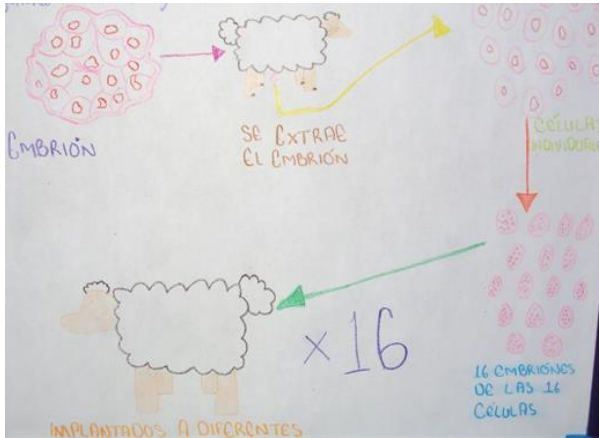 EMBRIÓN
SE EXTRAE
EL EMBRIÓN
CÉLULAS
×16
16 EMBRIONES
DE LAS 16
CÉLULAS
IMPLANTADOS A DIFERENTES